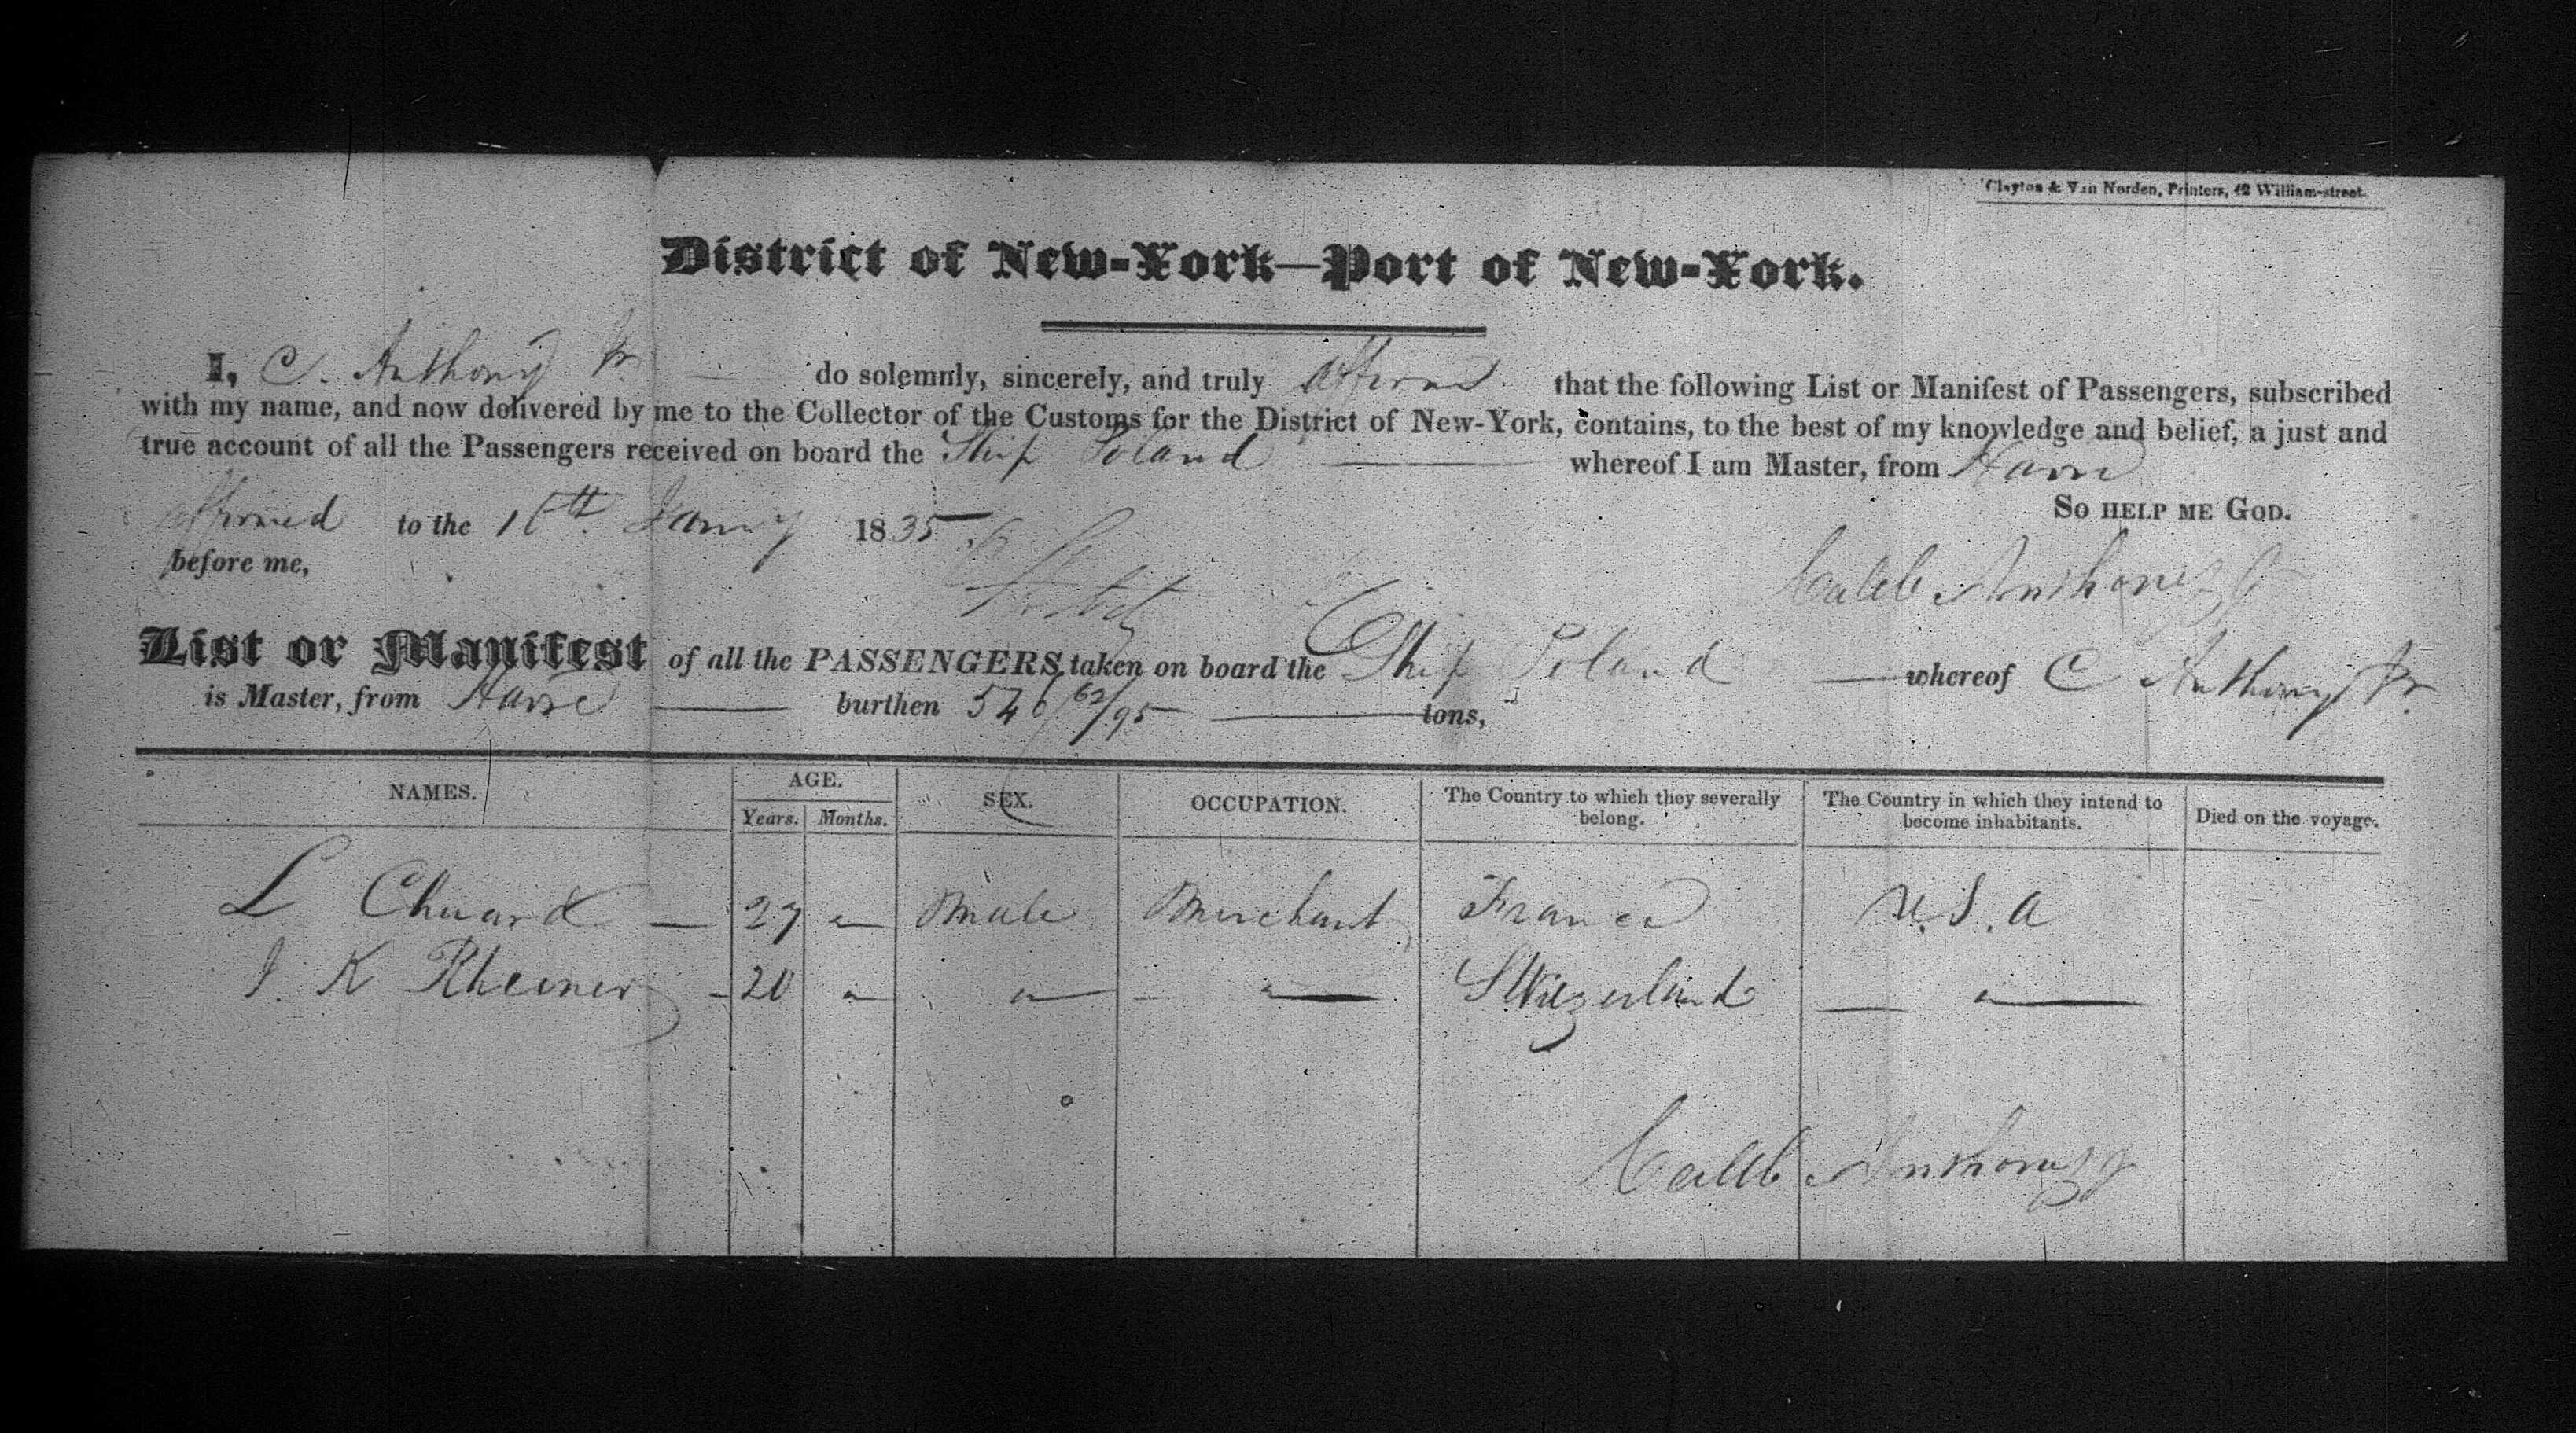 Clayton & Van Norden, Printers, 42 William-street.
District of New-York—Port of New-York.
I, C. Anthony Jr do solemnly, sincerely, and truly affirm that the following List or Manifest of Passengers, subscribed
with my name, and now delivered by me to the Collector of the Customs for the District of New-York, contains, to the best of my knowledge and belief, a just and
true account of all the Passengers received on board the Ship Poland whereof I am Master, from Havre
So help me God.
affirmed to the 16th Jany 1835
before me,
Caleb Anthony Jr
List or Manifest of all the PASSENGERS taken on board the Ship Poland whereof C Anthony Jr
is Master, from Havre burthen 546 62/95 tons,
NAMES. AGE. Years. Months. SEX. OCCUPATION. The Country to which they severally belong. The Country in which they intend to become inhabitants. Died on the voyage.
L 27 " Male Merchant France U.S.A
J. K Rheiner 20 " " " Switzerland "
Caleb Anthony Jr